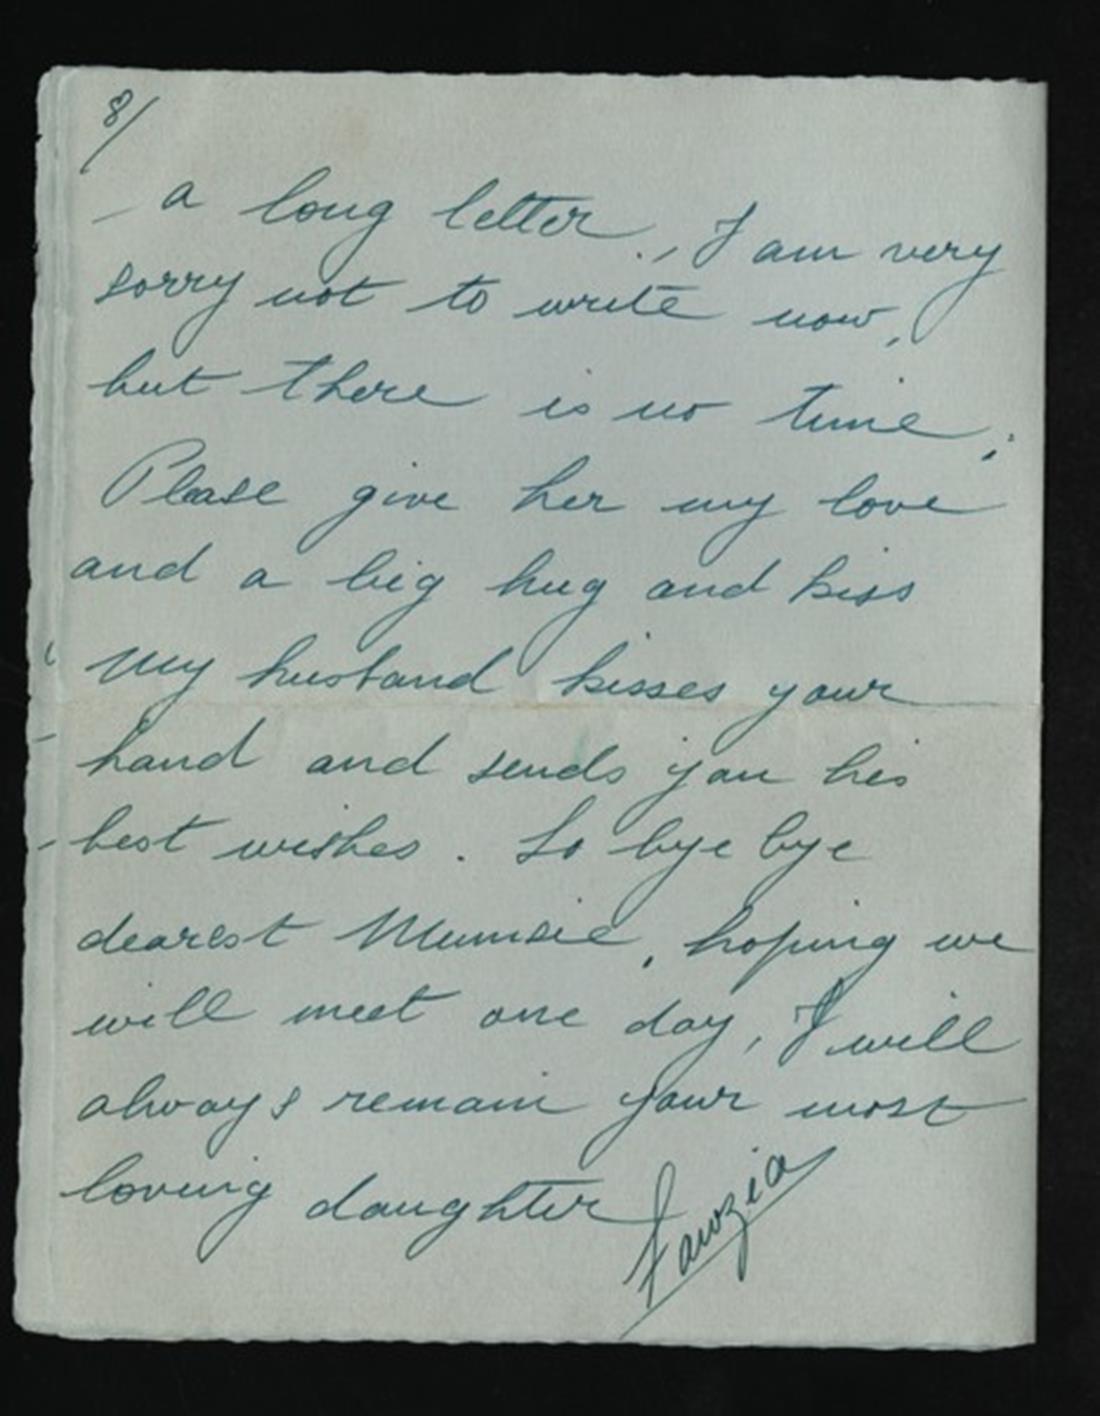 8/
a long letter., I am very
sorry not to write now,
but there is no time;
Please give her my love
and a big hug and kiss
My husband kisses your
hand and sends you his
best wishes. So bye bye
dearest Mumsie, hoping we
will meet one day, I will
always remain your most
loving daughter
Fawzia